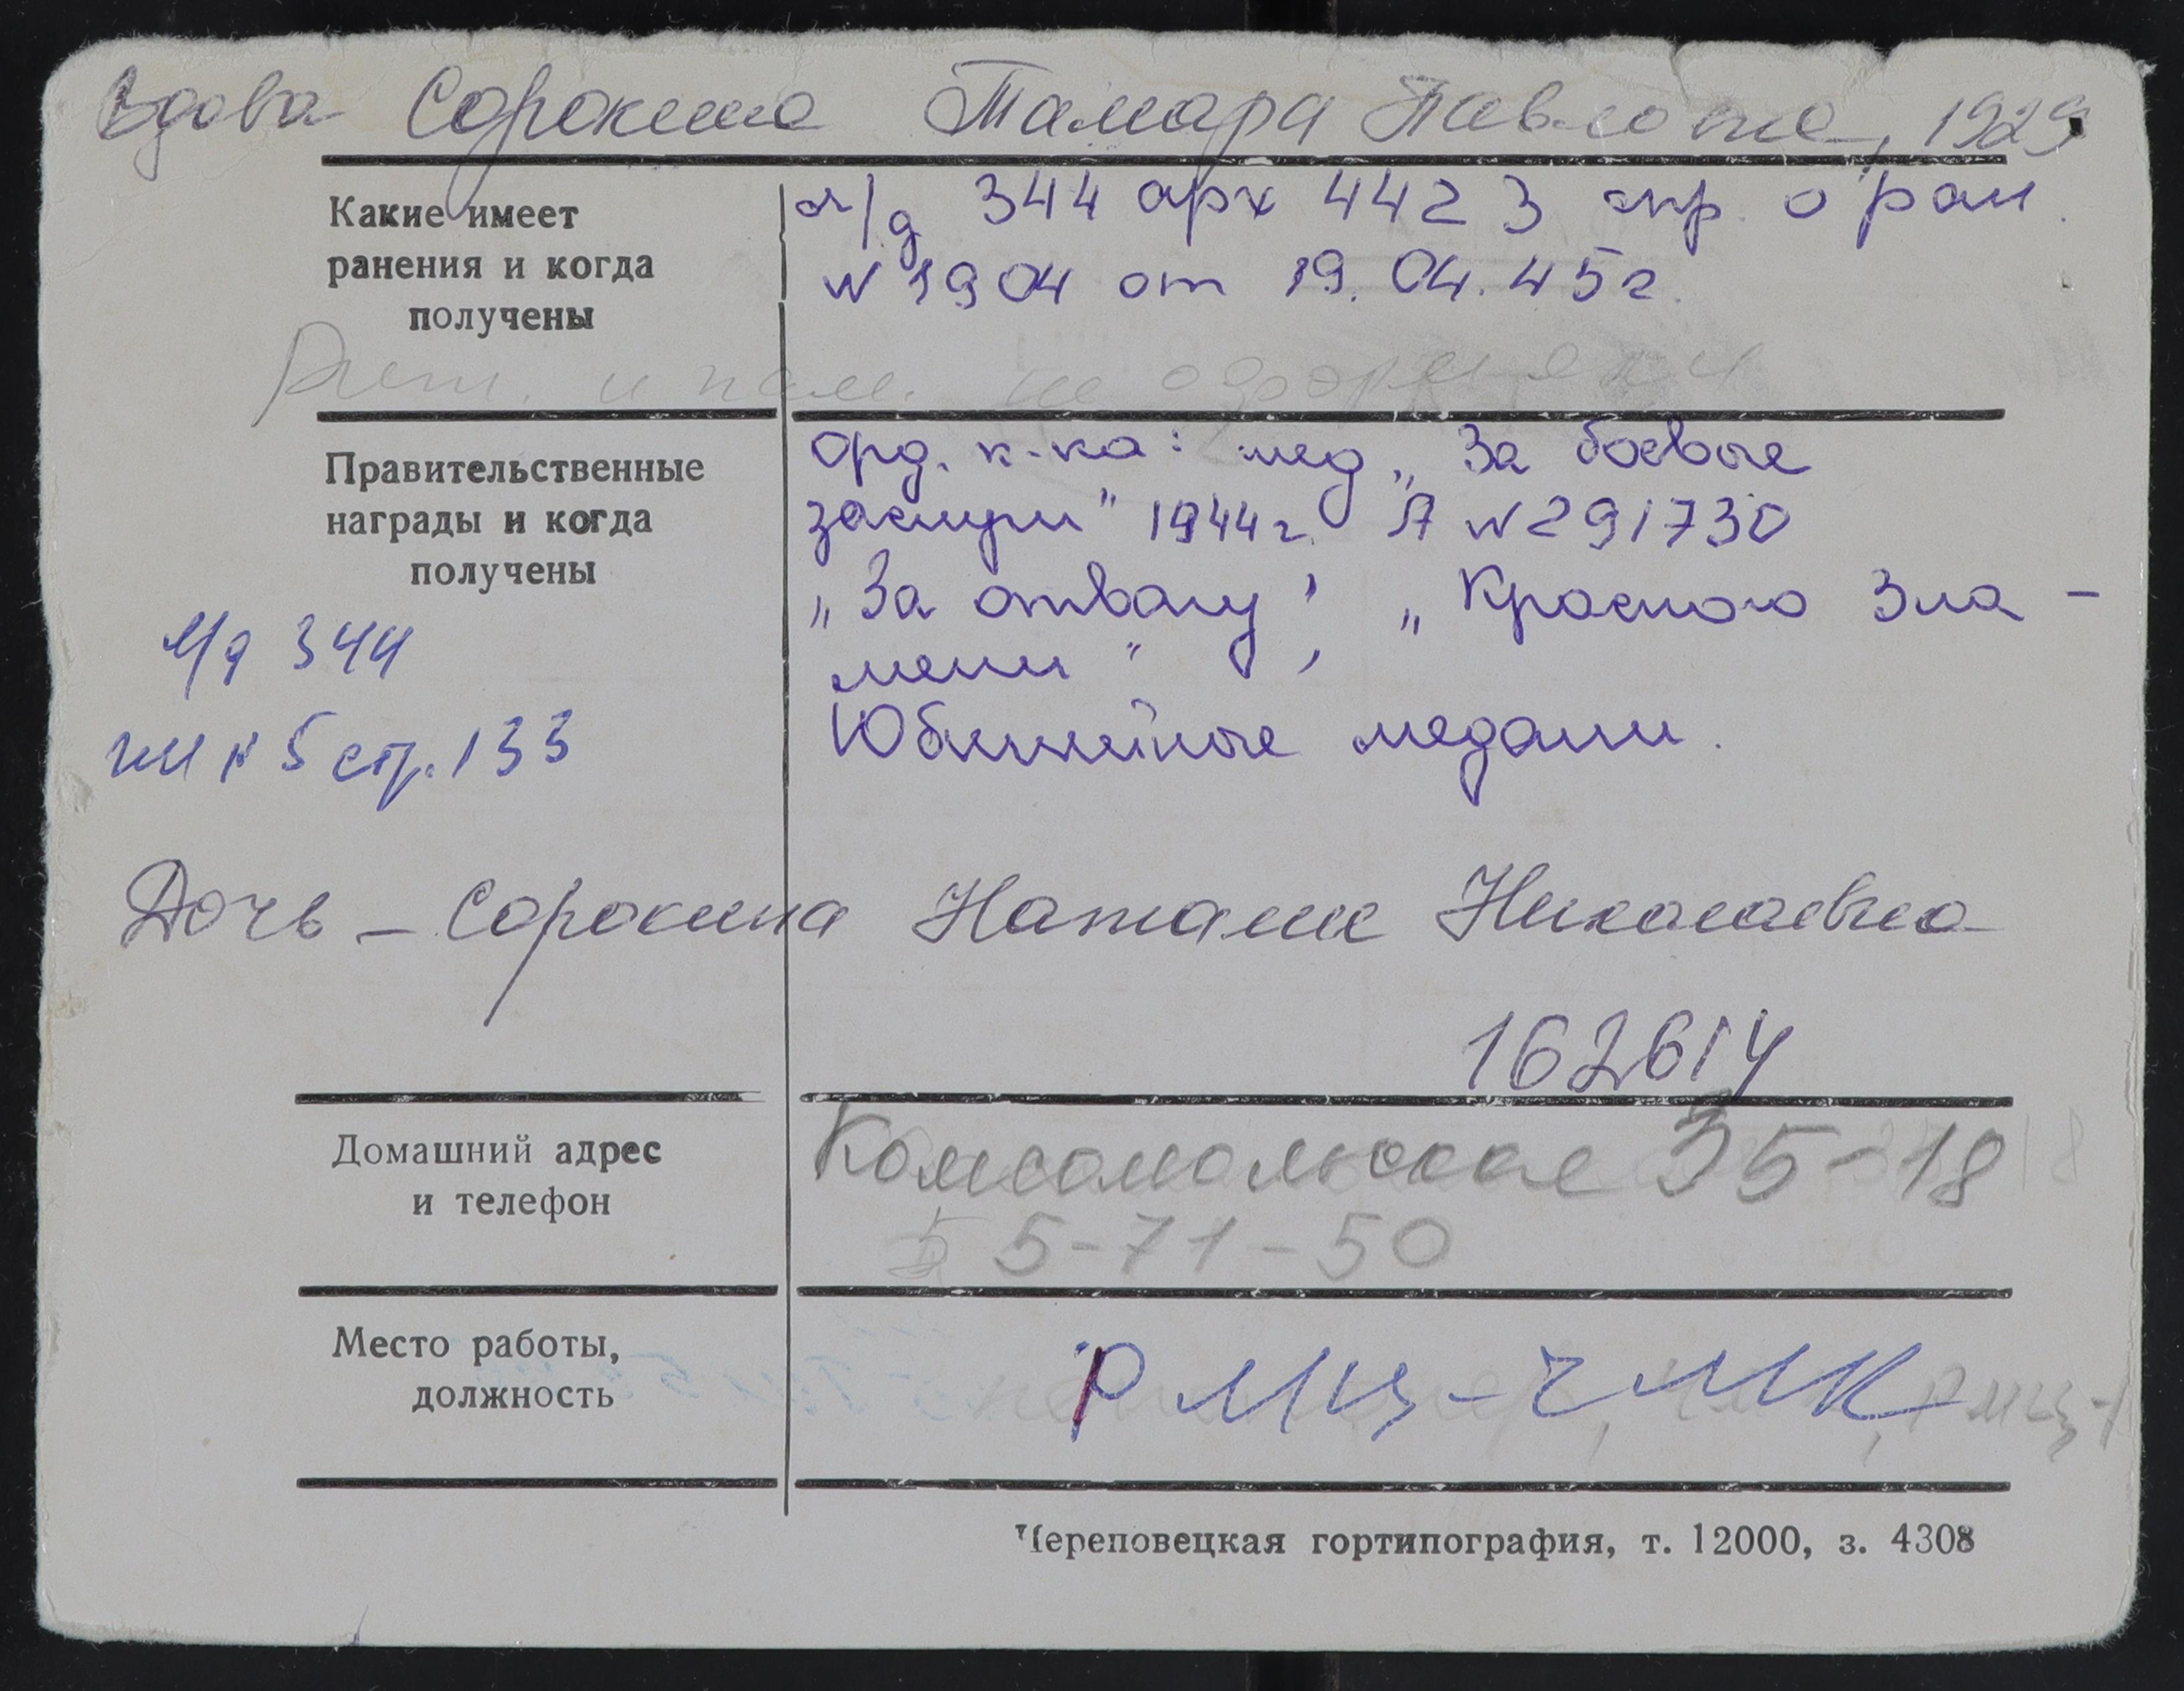 Вдова Сорокина Тамара Павловна, 1929
Какие имеет
ранения и когда
получены
л/д 344 арх 4423 спр. о ран.
N 1904 от 19.04.45г.
и пам. не оформляли
Правительственные
награды и когда
получены
Орд. к-ка: мед „За боевые
заслуги" 1944г. А N 291730
„За отвагу", „Красного Зна-
мени"
Юбилейные медали.
л/д 344
N 5 стр. 133
Дочь - Сорокина Наталия Николаевна
162614
Домашний адрес
и телефон
Комсомольская 35-18
5-71-50
Место работы,
должность
РМЦ-ЧМК
, РМЦ-1
Череповецкая гортипография, т. 12000, з. 4308